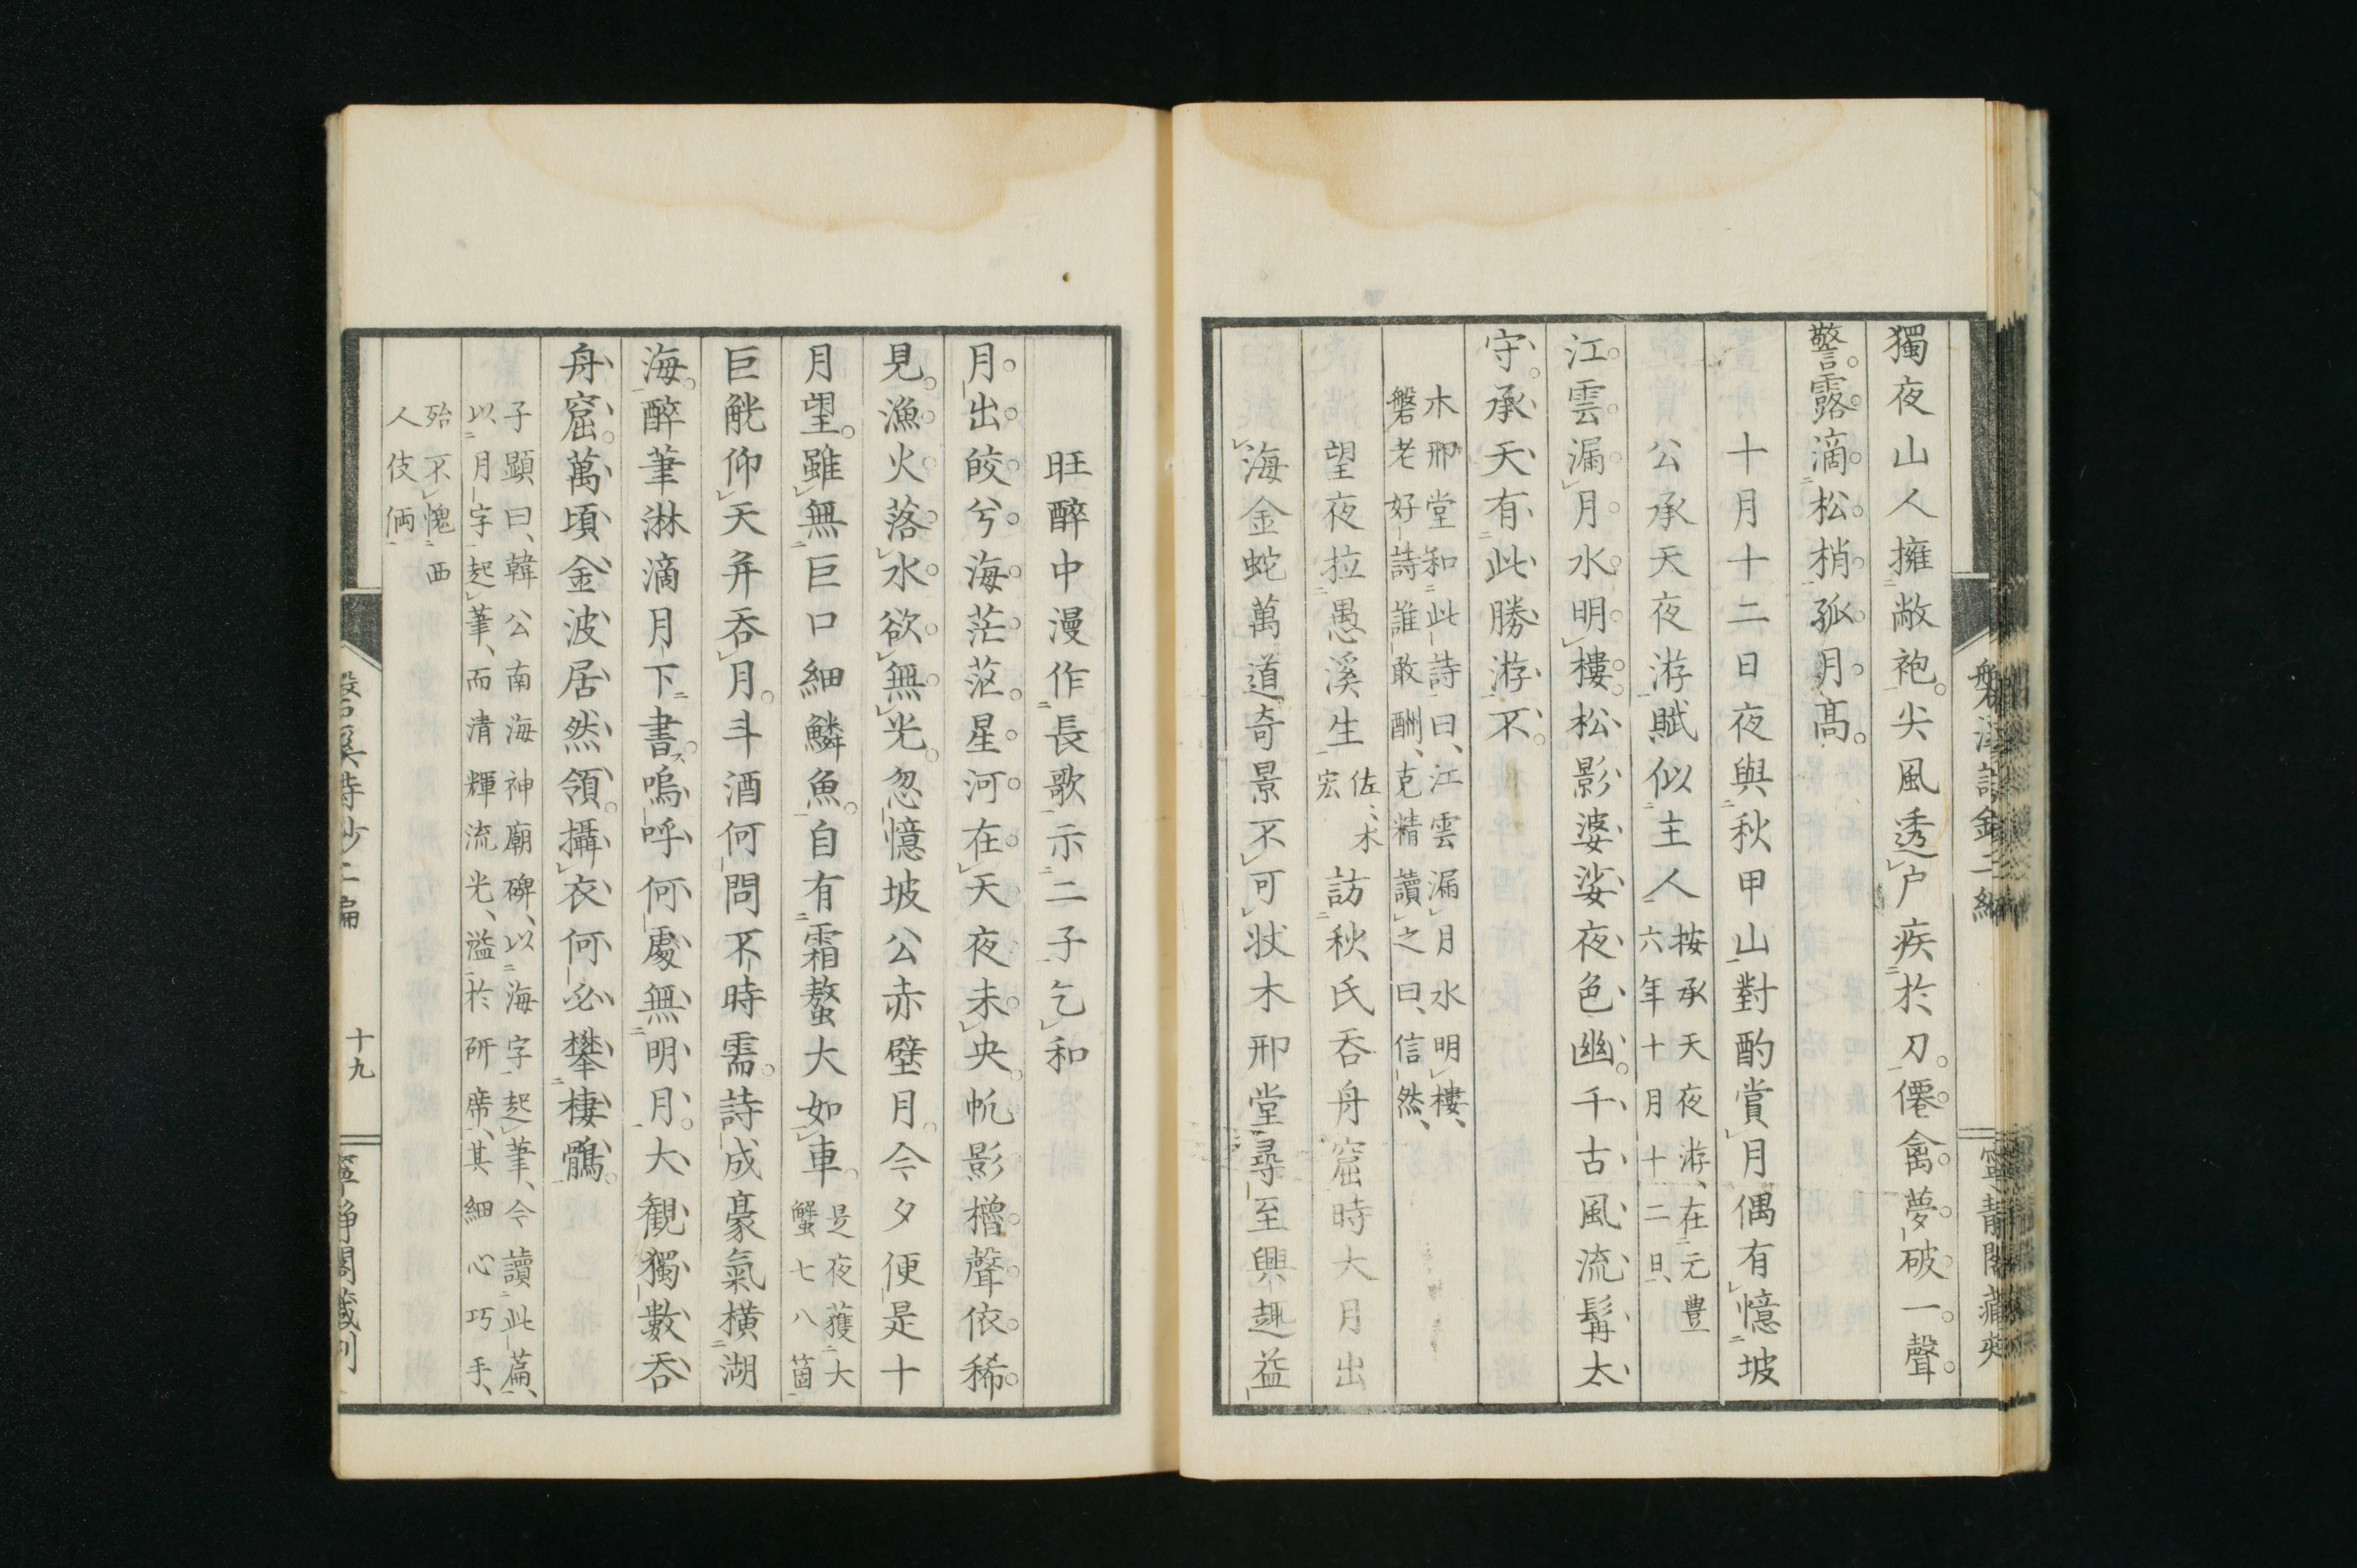 獨夜山人擁敝袍尖風透戶疾於刀僊禽夢破一聲
警露滴松梢孤月高
十月十二日夜與秋甲山對酌賞月偶有憶坡
公承天夜游賦似主人
按承天夜游、在元豊
六年十月十二日、
江雲漏月水明樓松影婆娑夜色幽千古風流髯太
守承天有此勝游不
木邢堂和此詩曰、江雲漏月水明樓、
磐老好詩誰敢酬、克精讀之曰、信然、
望夜拉愚溪生
佐々木
宏
訪秋氏呑舟窟時大月出
海金蛇萬道奇景不可状木邢堂尋至興趣益
旺醉中漫作長歌示二子乞和
月出皎兮海茫茫星河在天夜未央帆影櫓聲依稀
見漁火落水欲無光忽憶坡公赤壁月今夕便是十
月望雖無巨口細鱗魚自有霜螯大如車
是夜獲大
蟹七八箇
巨觥仰天弁呑月斗酒何問不時需詩成豪氣橫湖
海醉筆淋滴月下書嗚呼何處無明月大観獨數呑
舟窟萬頃金波居然領攝衣何必攀棲鶻
子顕曰、韓公南海神廟碑、以海字起筆、今讀此篇、
以月字起筆、而清輝流光、溢於研席、其細心巧手、
殆不愧西
人伎倆
十九